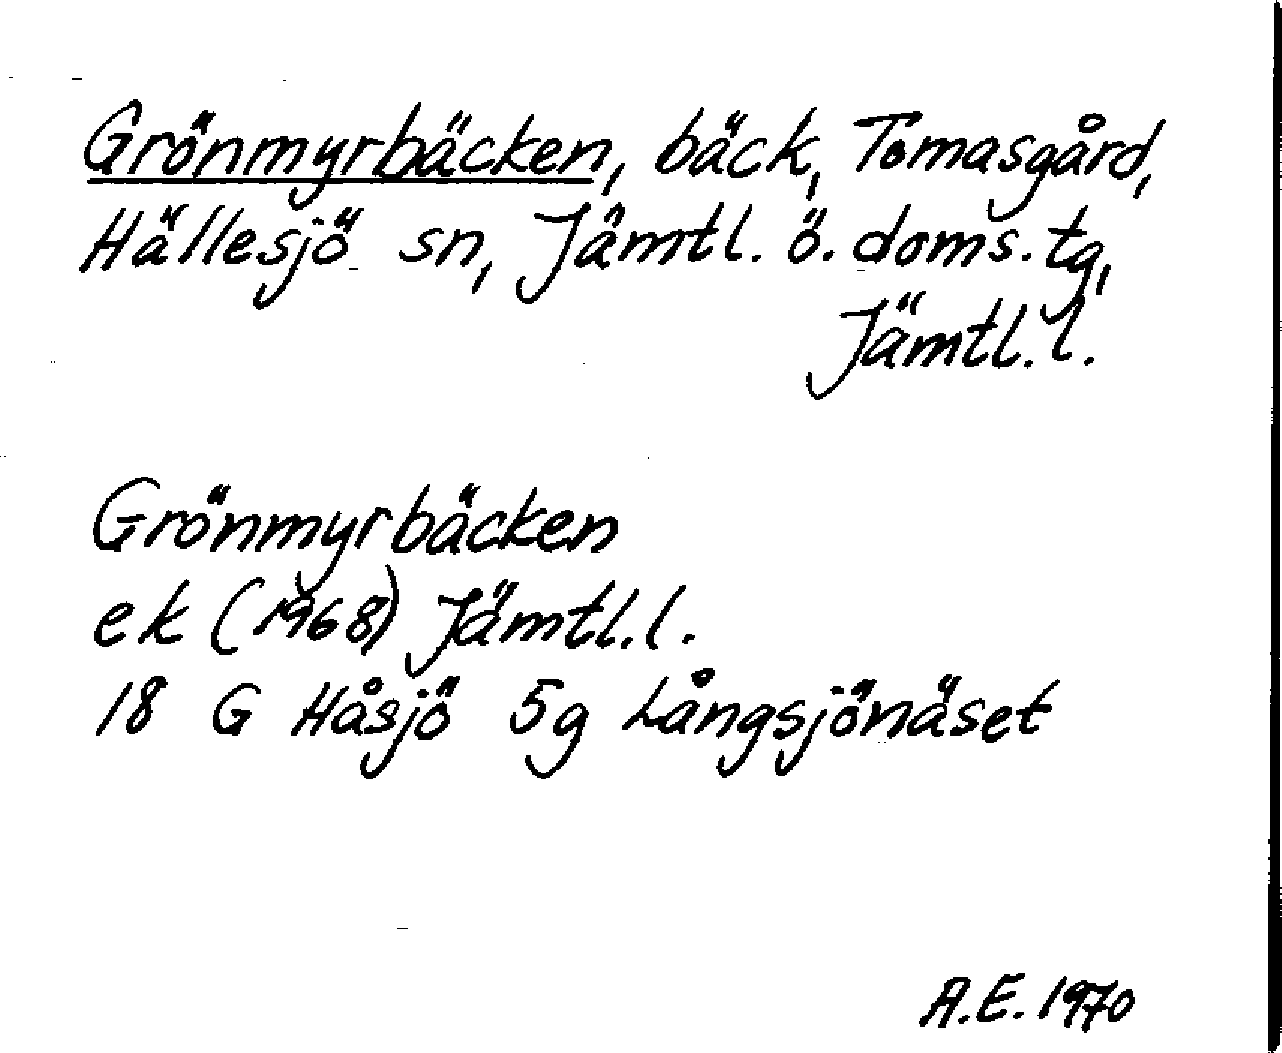 Grönmyrbäcken, bäck, Tomasgård,
Hällesjö sn, Jämtl. ö. doms. tg,
Jämtl. l.
Grönmyrbäcken
ek (1968) Jämtl. l.
18 G Håsjö 5g Långsjönäset
A.E. 1970